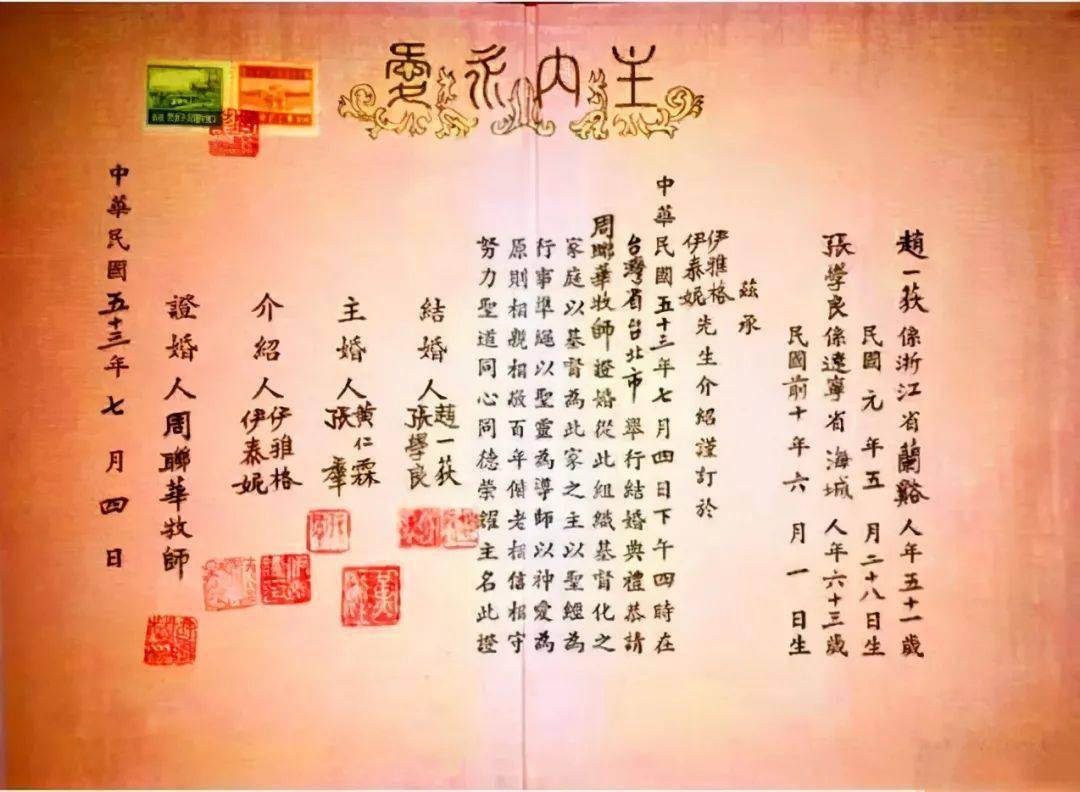 主內永愛
趙一荻係浙江省蘭谿人年五十一歲
民國元年五月二十八日生
張學良係遼寧省海城人年六十三歲
民國前十年六月一日生
茲承
伊雅格
伊泰妮
先生介紹謹訂於
中華民國五十三年七月四日下午四時在
台灣省台北市舉行結婚典禮恭請
周聯華牧師證婚從此組織基督化之
家庭以基督為此家之主以聖經為
行事準繩以聖靈為導師以神愛為
原則相親相敬百年偕老相信相守
努力聖道同心同德榮耀主名此證
結婚人
趙一荻
張學良
主婚人
黃仁霖
張羣
介紹人
伊雅格
伊泰妮
證婚人周聯華牧師
中華民國五十三年七月四日